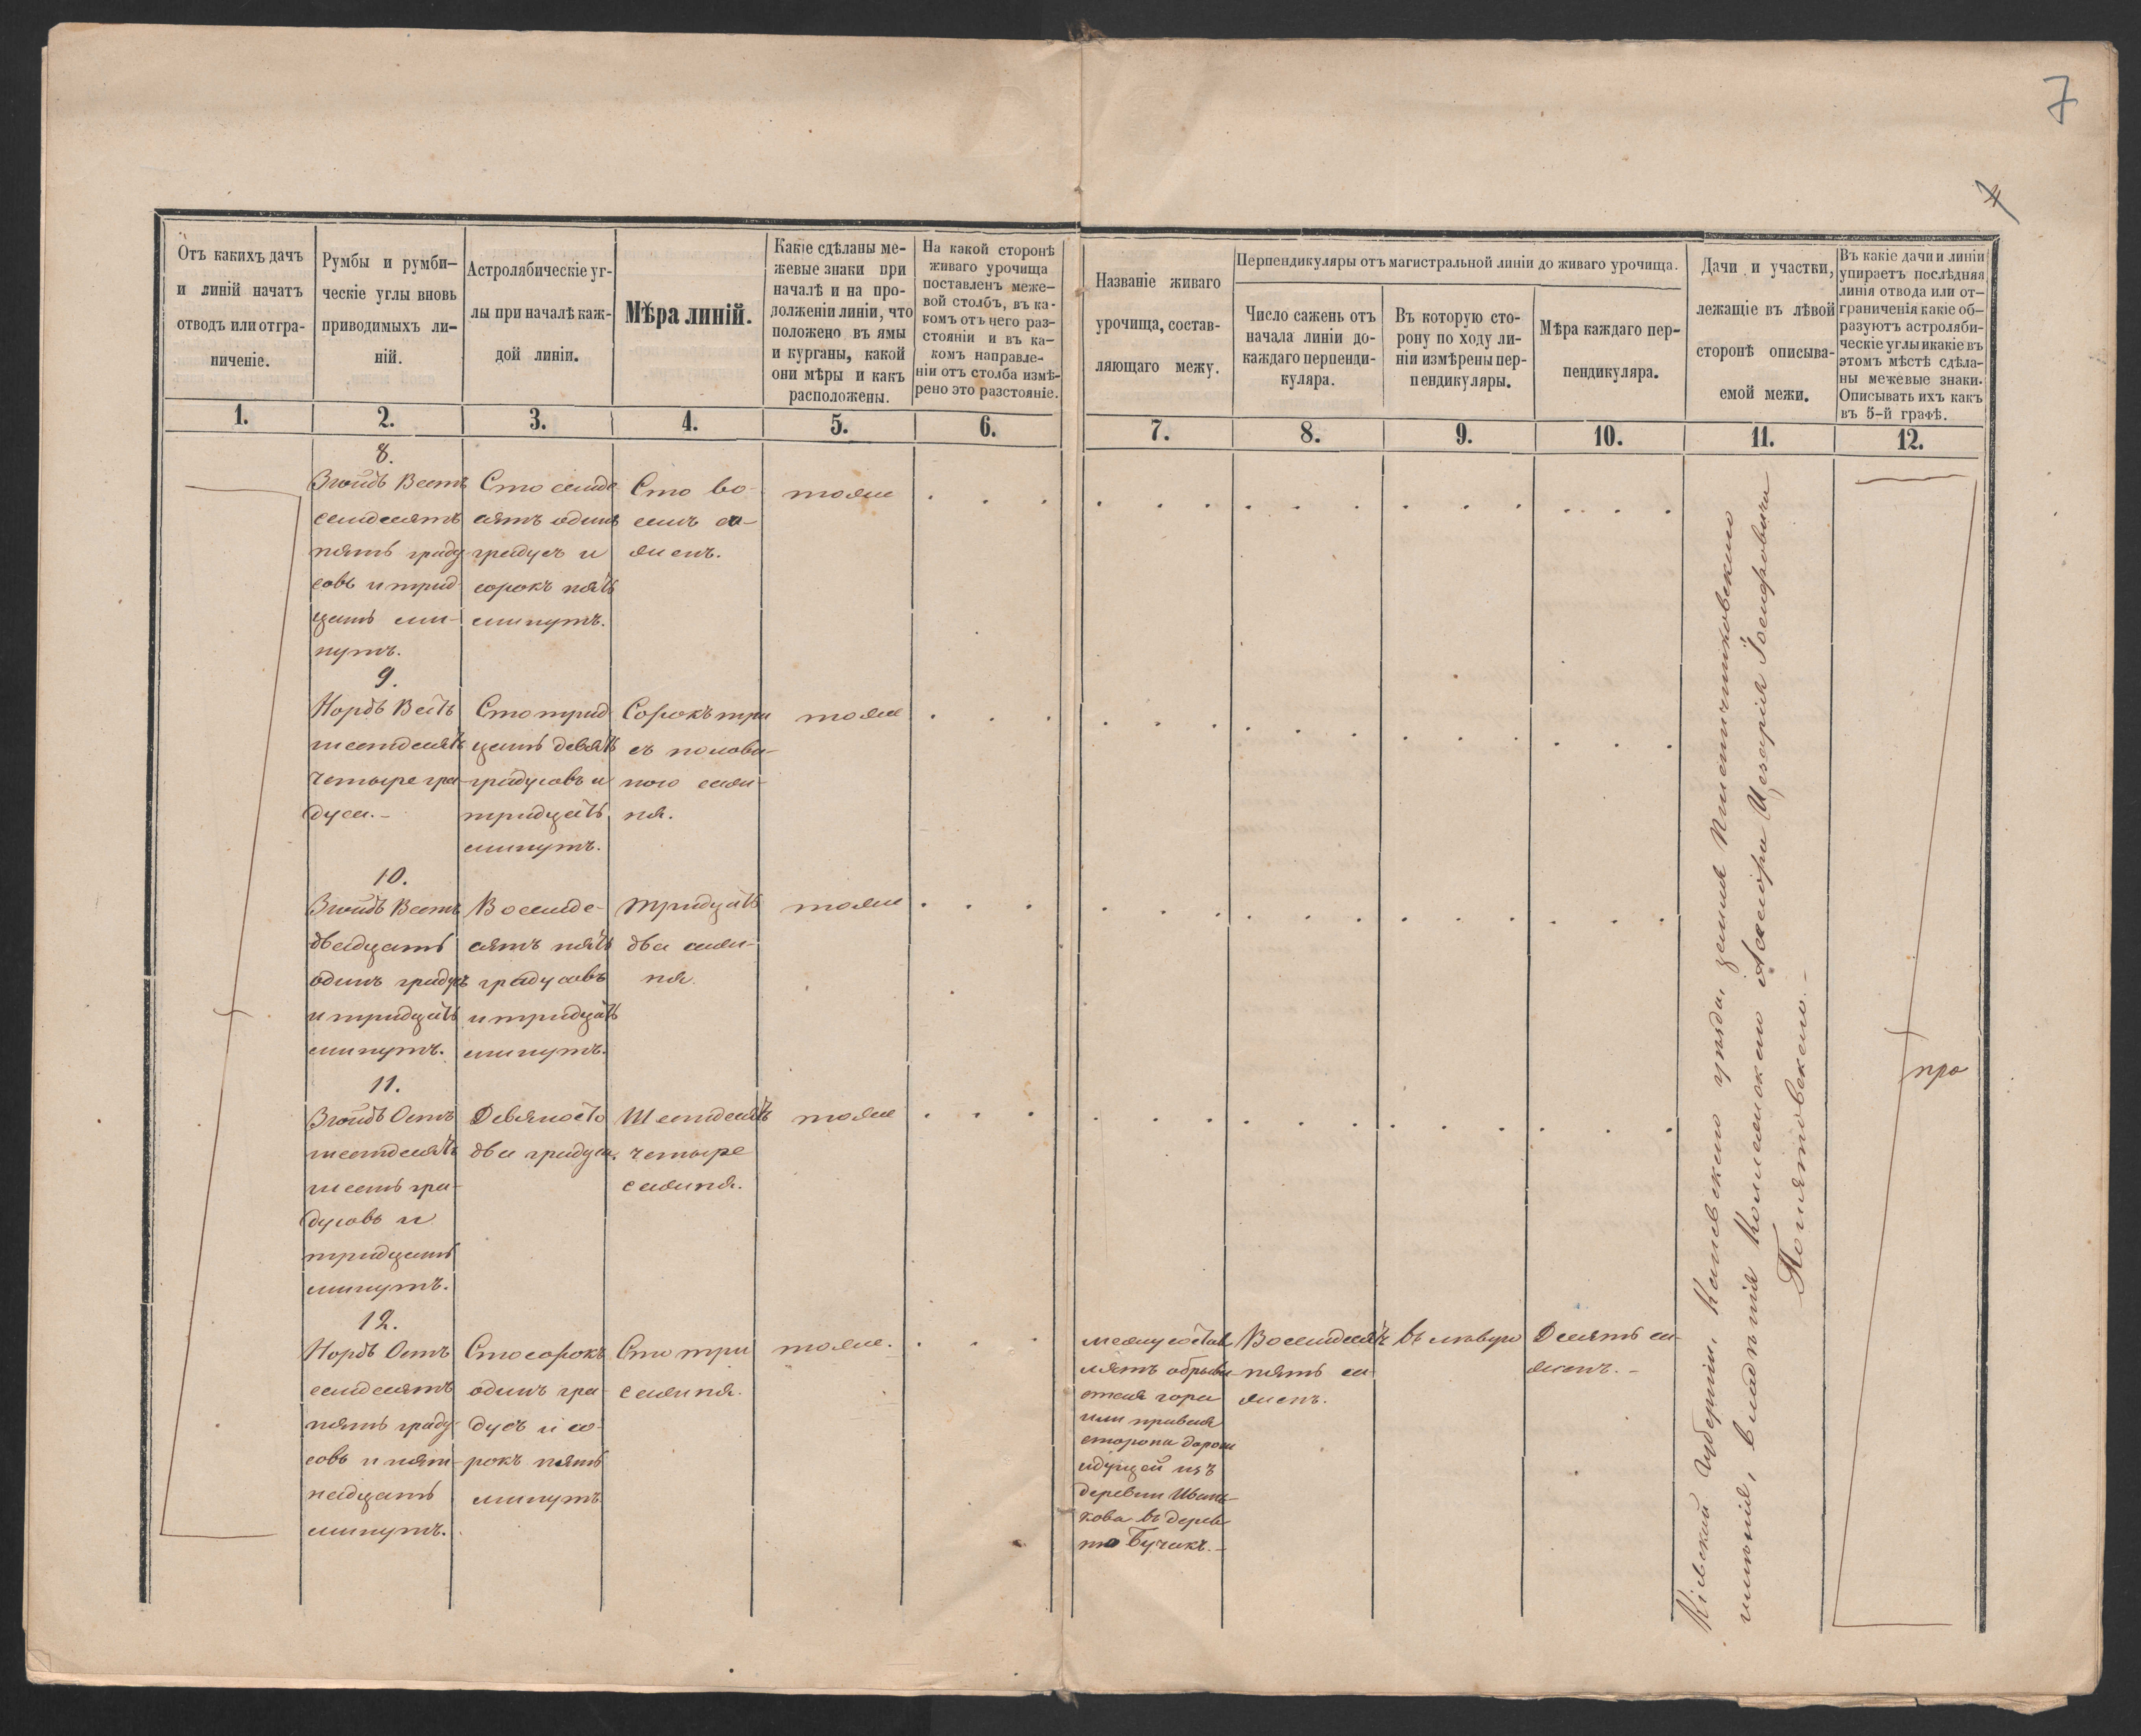 7
7
Отъ какихъ дачъ
и линій начатъ
отводъ или отгра-
ниченіе.
Румбы и румби-
ческіе углы вновь
приводимыхъ ли-
ній.
Астролябическіе уг-
лы при началѣ каж-
дой линіи.
Мѣра линій.
Какіе сдѣланы ме-
жевые знаки при
началѣ и на про-
долженіи линіи, что
положено въ ямы
и курганы, какой
они мѣры и какъ
расположены.
На какой сторонѣ
живаго урочища
поставленъ меже-
вой столбъ, въ ка-
комъ отъ него раз-
стояніи и въ ка-
комъ направле-
ніи отъ столба измѣ-
рено это разстояніе.
Названіе живаго
урочища, состав-
ляющаго межу.
Перпендикуляры отъ магистральной линіи до живаго урочища.
Число сажень отъ
начала линіи до
каждаго перпенди-
куляра.
Въ которую сто-
рону по ходу ли-
ніи измѣрены пер-
пендикуляры.
Мѣра каждаго пер-
пендикуляра.
Дачи и участки,
лежащіе въ лѣвой
сторонѣ описыва-
емой межи.
Въ какіе дачи и линіи
упираетъ послѣдняя
линія отвода или от-
граниченія какіе об-
разуютъ астроляби-
ческіе углы и какіе въ
этомъ мѣстѣ сдѣла-
ны межевые знаки.
Описывать ихъ какъ
въ 5-й графѣ.
1. 2. 3. 4. 5. 6. 7. 8. 9. 10. 11. 12.
8.
Зюйдъ Вестъ
семдесятъ
пять граду
совъ и трид
цать ми-
нутъ.
Сто семде
сятъ одинъ
градусъ и
сорокъ пять
минутъ.
Сто во-
семь са-
женъ.
тоже
9.
Нордъ Вестъ
шестдесятъ
четыре гра-
дуса.-
Сто трид
цать девять
градусовъ и
тридцать
минутъ.
Сорокъ три
съ полови-
ною саже-
ня.
тоже
10.
Зюйдъ Вестъ
двадцать
одинъ градусъ
и тридцать
минутъ.
Восемде-
сятъ пять
градусовъ
и тридцать
минутъ.
Тридцать
два саже-
ня.
тоже
11.
Зюйдъ Остъ
шестдесятъ
шесть гра-
дусовъ и
тридцать
минутъ.
Девяносто
два градуса.
Шестдесятъ
четыре
саженя.
тоже
12.
Нордъ Остъ
семдесятъ
пять граду-
совъ и пят-
надцать
минутъ.
Сто сорокъ
одинъ гра-
дусъ и со-
рокъ пять
минутъ.
Сто три
саженя.
тоже.
межу состав
ляетъ обрыви
стая гора
или правая
сторона дороги
идущей изъ
деревни Ивань-
кова въ дерев-
ню Бучакъ.-
Восемдесятъ
пять са-
женъ.
въ лѣвую
Десять са-
женъ.-
Кіевской губерніи, Каневскаго уѣзда, земля Пшеничниковскаго
имѣнія, владѣнія Колежскаго Асесора Цезарія Іосифовича
Понятовскаго.-
про